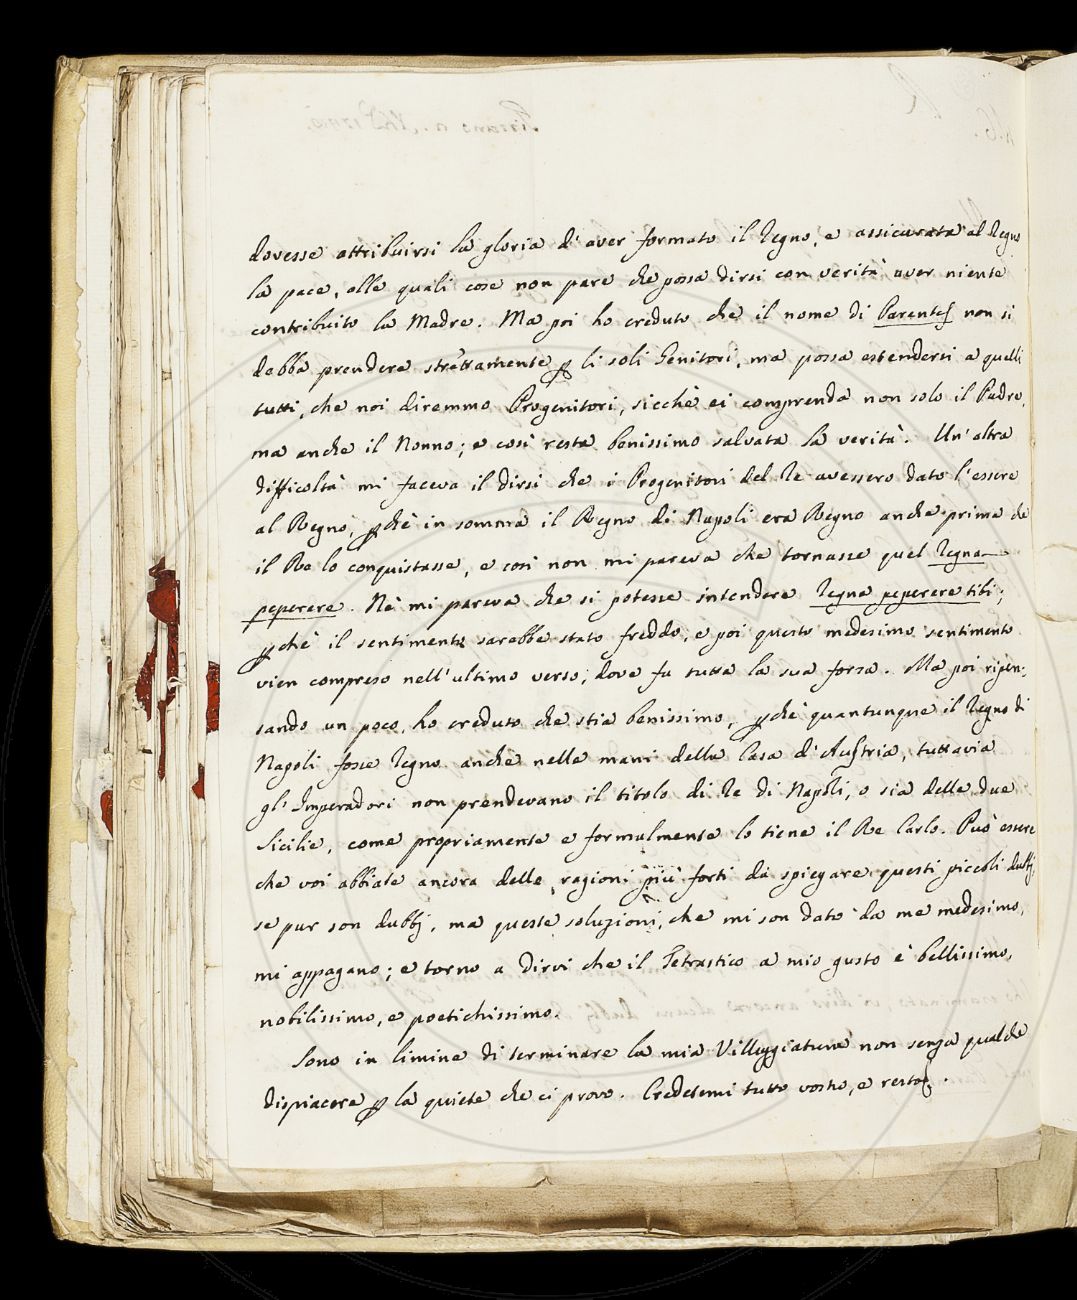 dovesse attribuirsi la gloria d'aver formato il Regno, e assicurata al Regno
la pace, alle quali cose non pare che possa dirsi con verità aver niente
contribuito la Madre. Ma poi ho creduto che il nome di Parentes non si
debba prendere strettamente p li soli Genitori, ma possa estendersi a quelli
tutti, che noi diremmo Progenitori, sicchè ei comprenda non solo il Padre,
ma anche il Nonno; e così resta benissimo salvata la verità. Un'altra
difficoltà mi faceva il dirsi che i Progenitori del Re avessero dato l'essere
al Regno, pchè in somma il Regno di Napoli era Regno anche prima che
il Re lo conquistasse, e così non mi pareva che tornasse quel Regna
peperere. Nè mi pareva che si potesse intendere Regna peperere tibi;
pchè il sentimento sarebbe stato freddo, e poi questo medesimo sentimento
vien compreso nell'ultimo verso, dove fa tutta la sua forza. Ma poi ripen:
sando un poco, ho creduto che stia benissimo, pchè quantunque il Regno di
Napoli fosse Regno anche nelle mani della Casa d'Austria, tuttavia
gl'Imperadori non prendevano il titolo di Re di Napoli, o sia delle due
Sicilie, come propriamente e formalmente lo tiene il Re Carlo. Può essere
che voi abbiate ancora delle ragioni più forti da spiegare questi piccoli dubbj,
se pur son dubbj, ma queste soluzioni, che mi son dato da me medesimo,
mi appagano; e torno a dirvi che il Tetrastico a mio gusto è bellissimo,
nobilissimo, e poetichissimo.
Sono in limine di terminare la mia Villeggiatura non senza qualche
dispiacere p la quiete che ci provo. Credetemi tutto vostro, e resto.